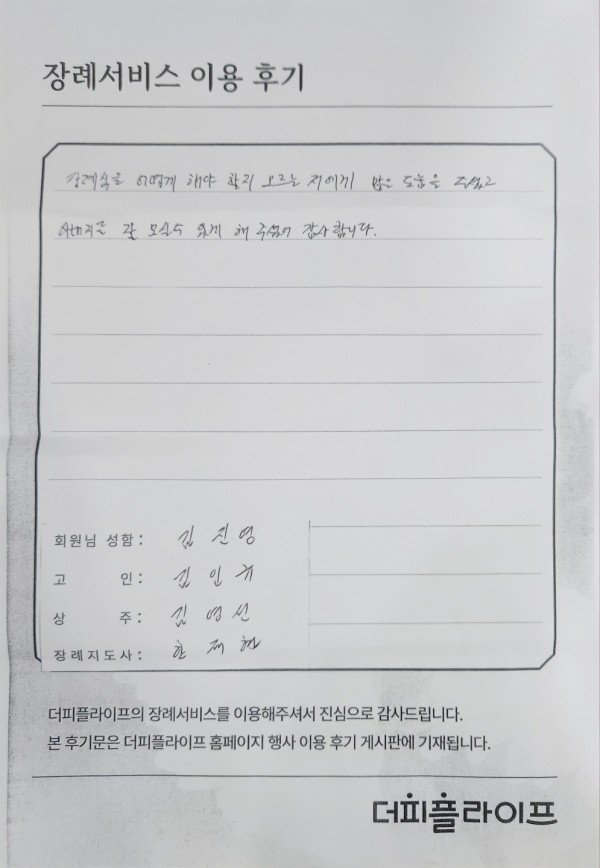 장례서비스 이용 후기
장례식을 어떻게 해야 할지 모르는 저에게 많은 도움을 주셨고
아버지를 잘 모실수 있게 해 주셔서 감사합니다.
회원님 성함 : 김진영
고 인 : 김인규
상 주 : 김영선
장례지도사 : 한재현
더피플라이프의 장례서비스를 이용해주셔서 진심으로 감사드립니다.
본 후기문은 더피플라이프 홈페이지 행사 이용 후기 게시판에 기재됩니다.
더피플라이프